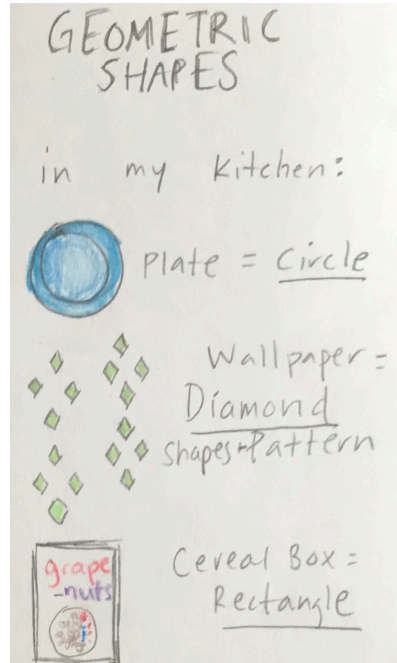 GEOMETRIC
SHAPES
in my kitchen:
Plate = Circle
Wallpaper =
Diamond
Shapes + Pattern
Cereal Box =
Rectangle
grape
-nuts